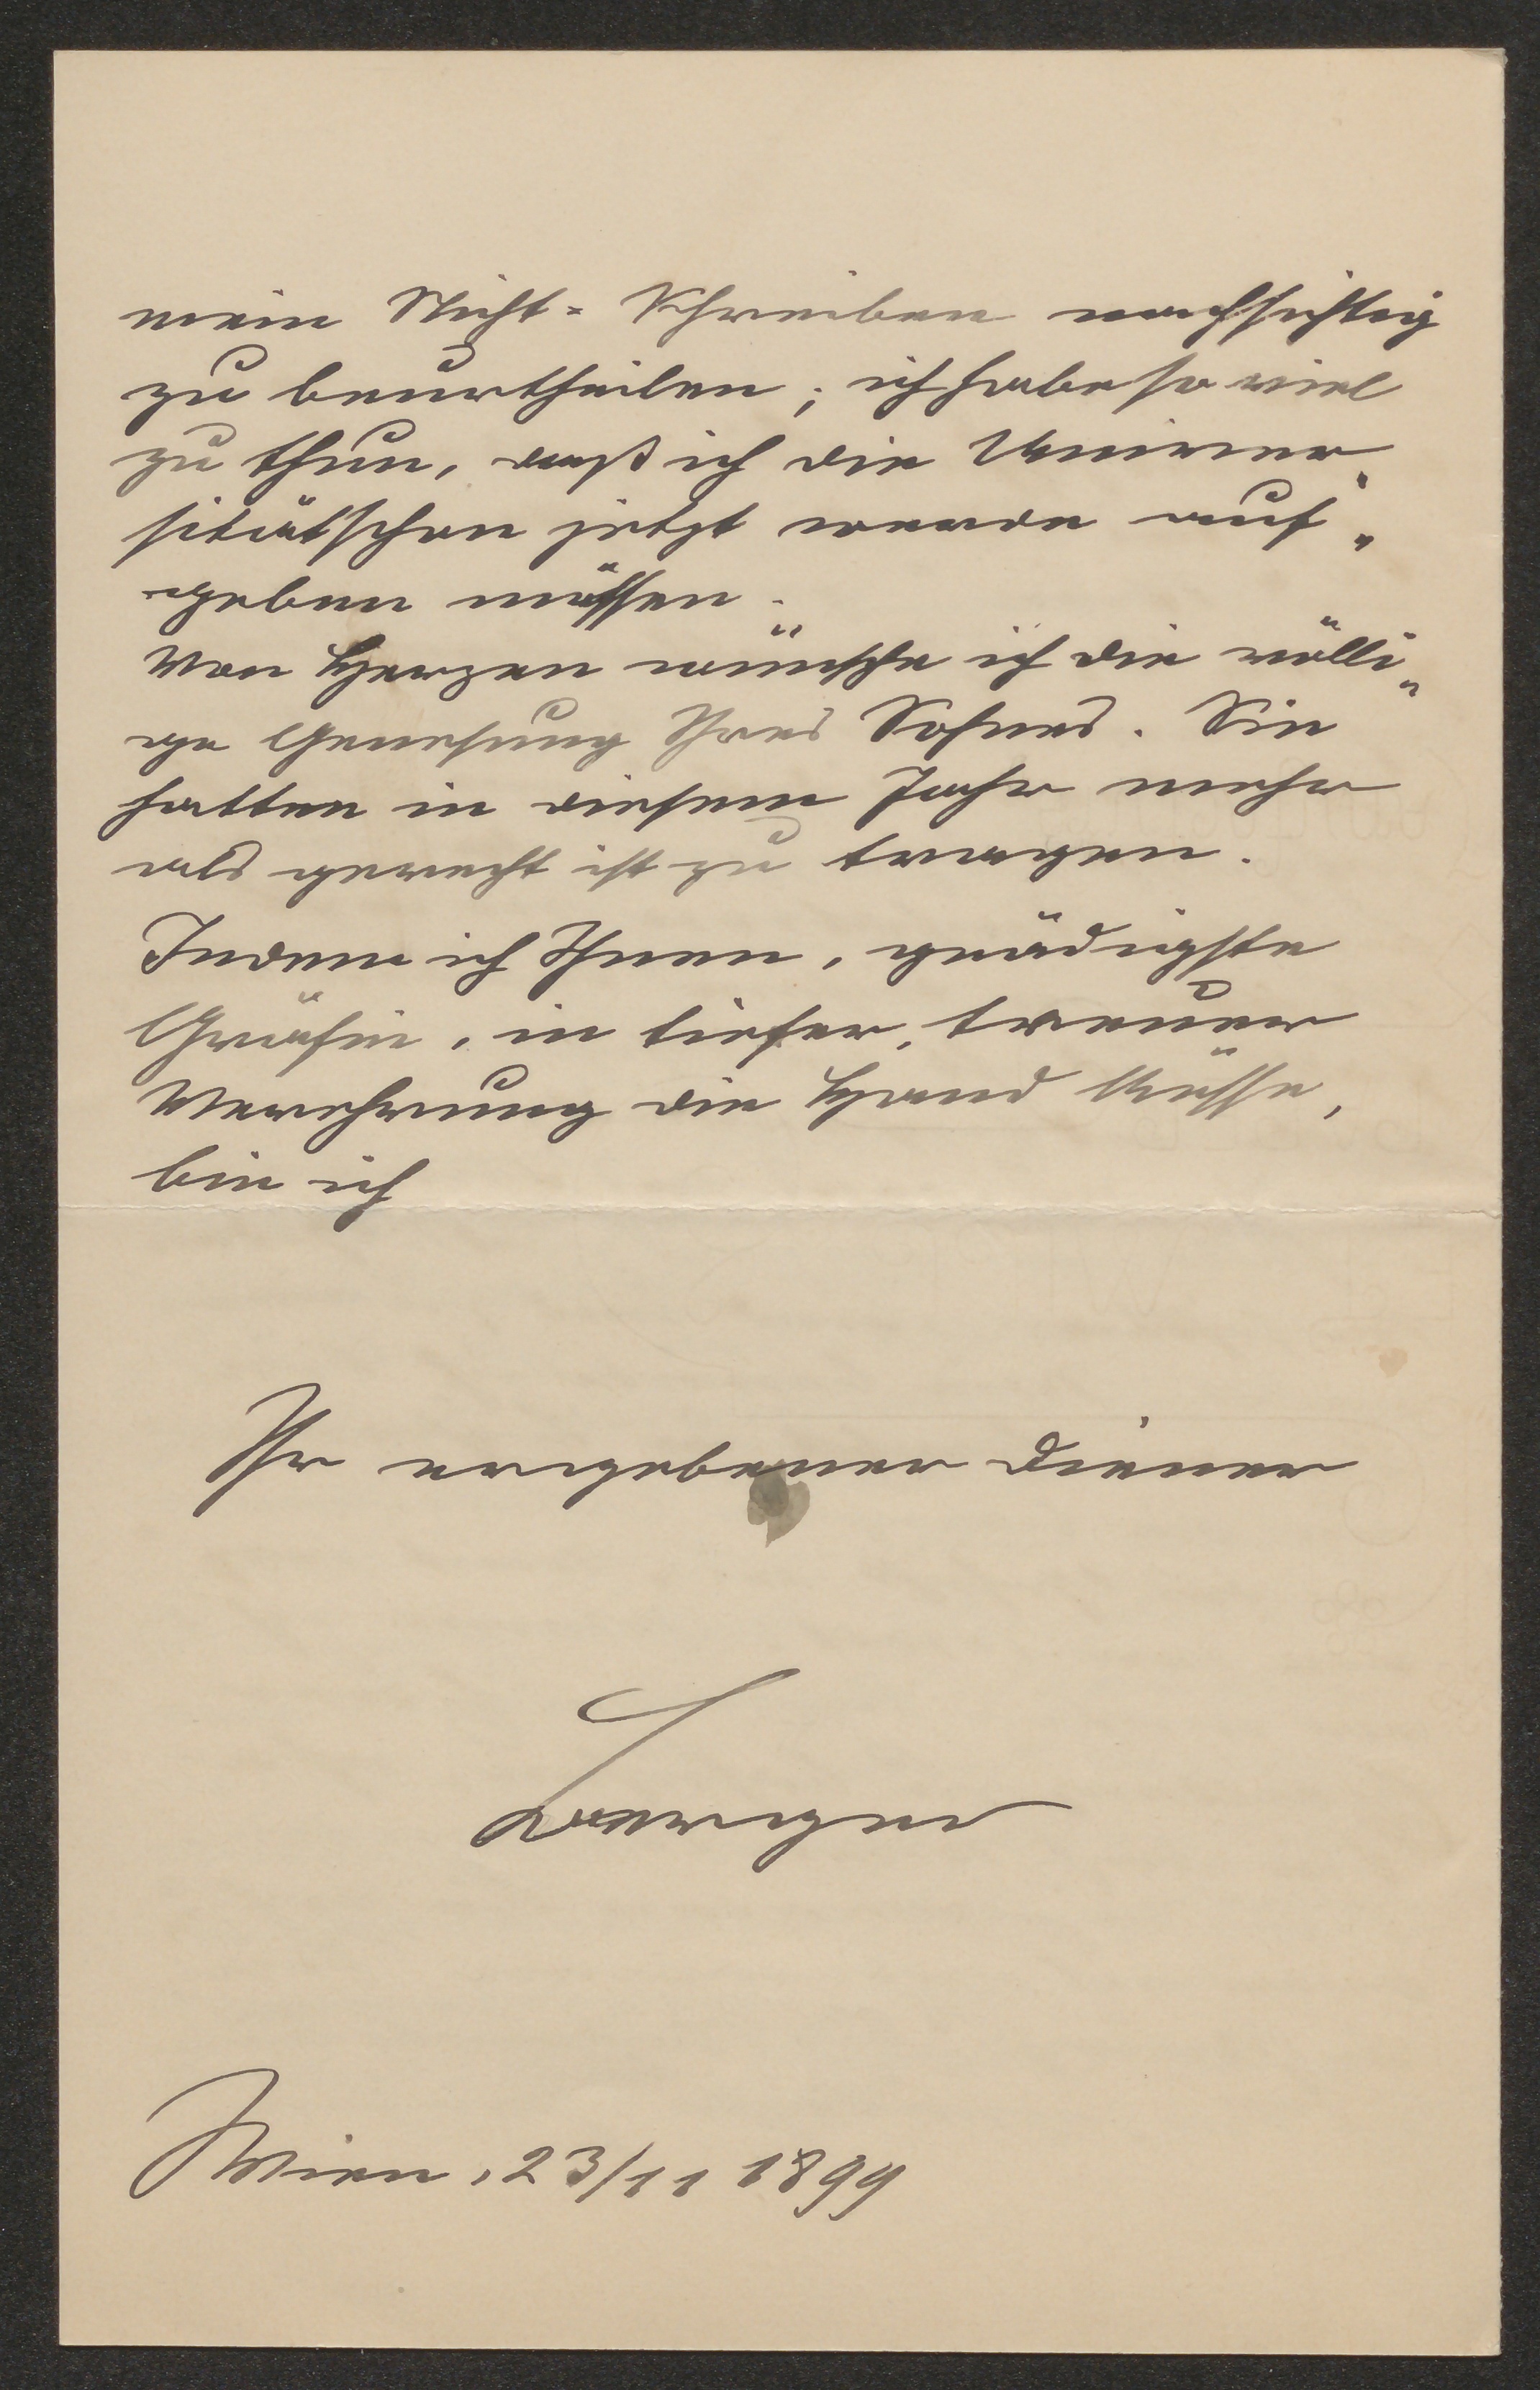 mein Nicht=Schreiben nachsichtig
zu beurtheilen; ich habe so viel
zu thun, daß ich die Univer„
sität schon jetzt werde auf„
geben müssen.
Von Herzen wünsche ich die völli„
ge Genesung Ihres Sohnes. Sie
hatten in diesem Jahr mehr
als gerecht ist zu tragen.
Indem ich Ihnen, gnädigste
Gräfin, in tiefer, treuer
Verehrung die Hand küsse,
bin ich
Ihr ergebener Diener
Berger
Wien, 23/11 1899